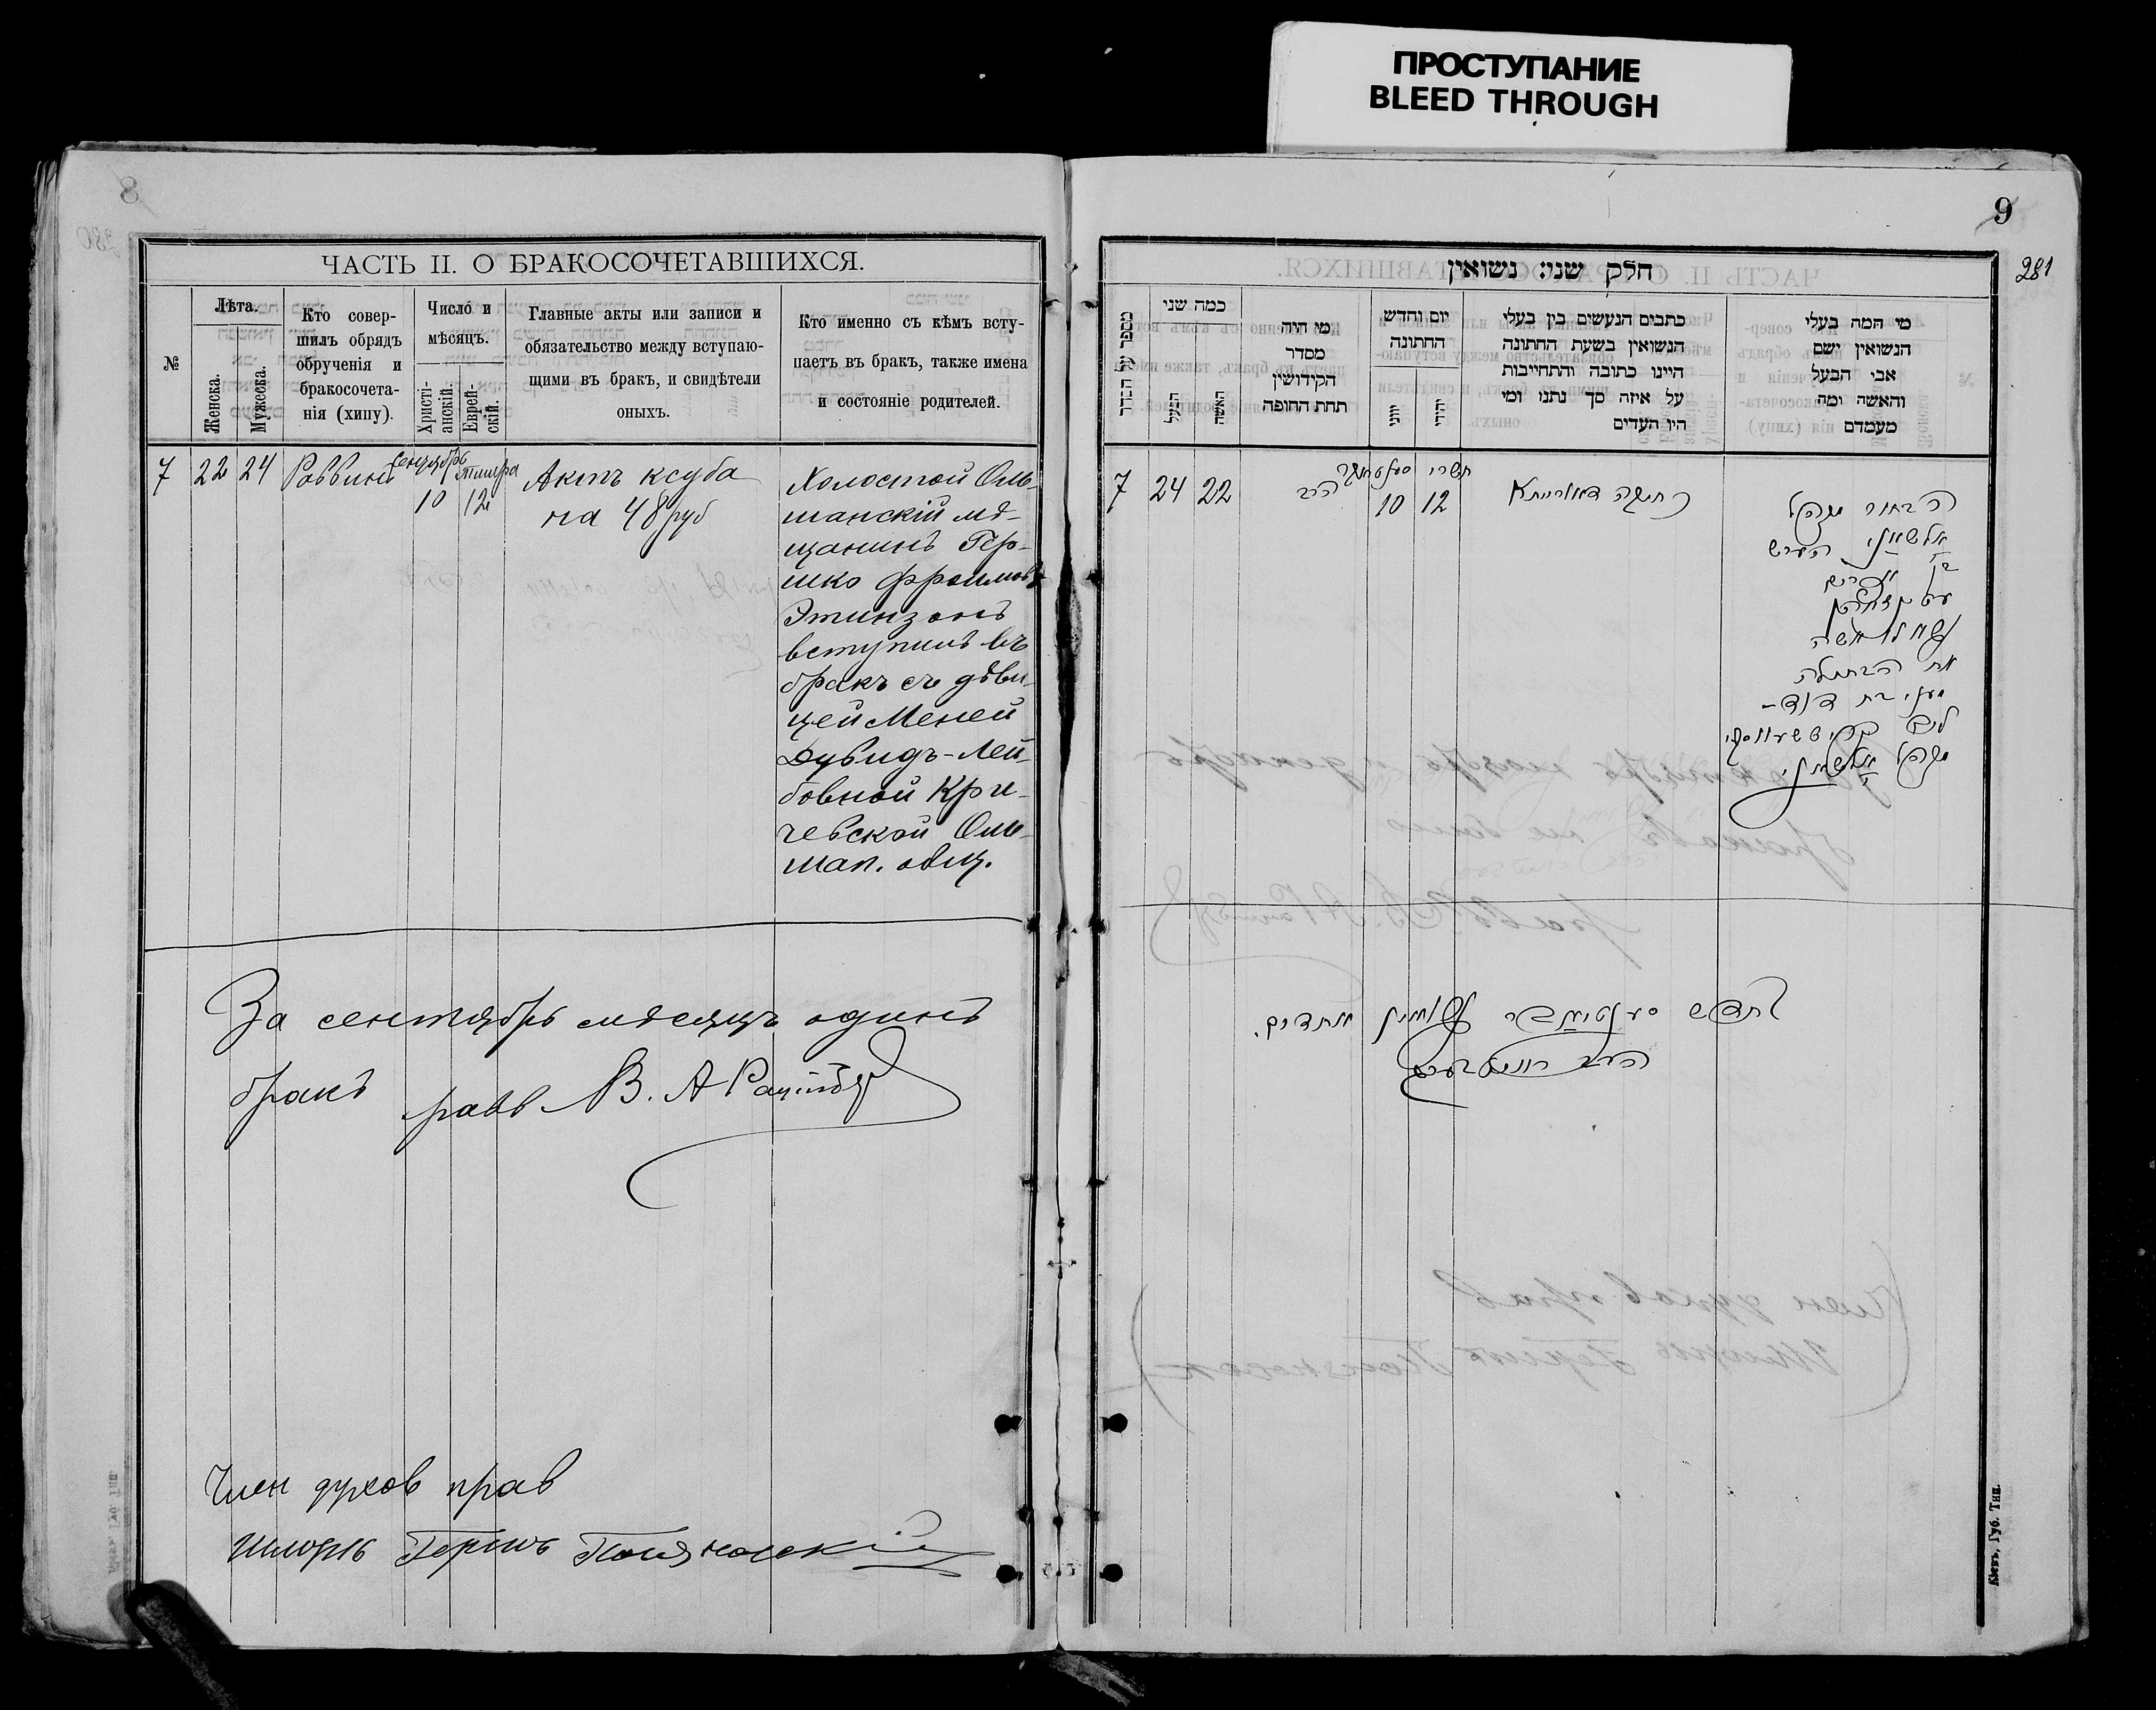 ПРОСТУПАНИЕ
BLEED THROUGH
8
ЧАСТЬ II. О БРАКОСОЧЕТАВШИХСЯ.
№
Лѣта.
Женска.
Мужеска.
Кто совер-
шилъ обрядъ
обрученія и
бракосочета-
нія (хипу).
Число и
мѣсяцъ.
Христі-
анскій.
Еврей-
скій.
Главные акты или записи и
обязательство между вступаю-
щими въ бракъ, и свидѣтели
оныхъ.
Кто именно съ кѣмъ всту-
паетъ въ бракъ, также имена
и состояніе родителей.
7
22
24
Раввинъ
Сентябрь
10
Тишра
12
Актъ ксуба
на 48 руб
Холостой Оль-
шанскій мѣ-
щанинъ Гер-
шко Фроимовъ
Этинзонъ
вступилъ въ
бракъ съ дѣви-
цей Меней
Дувидъ-Лей-
бовной Кри-
чевской Оль-
шан. общ.
За сентябрь мѣсяцъ одинъ
бракъ
равв В. А
Член духов прав
Шмерль Гершъ
9
281
חלק שני: נשואין
מספר על הסדר
כמה שני
הבעל
האשה
מי היה
מסדר
הקידושין
תחת החופה
יום וחדש
החתונה
יוני
יהודי
כתבים הנעשים בין בעלי
הנשואין בשעת החתונה
היינו כתובה והתחייבות
על איזה סך נתנו ומי
היו העדים
מי המה בעלי
הנשואין ושם
אבי הבעל
והאשה ומה
מעמדם
7
24
22
הרב
10
תשרי
12
דאורייתא
הבחור מקהל
אלשאני הערש
בן אפרים
נשא לאשה
את הבתולה
מעני בת דוד-
ליב
מקהל אלשאני
לחדש סעפטיאבר נשואין אחדים.
הרב
Кіевъ, Губ. Тип.